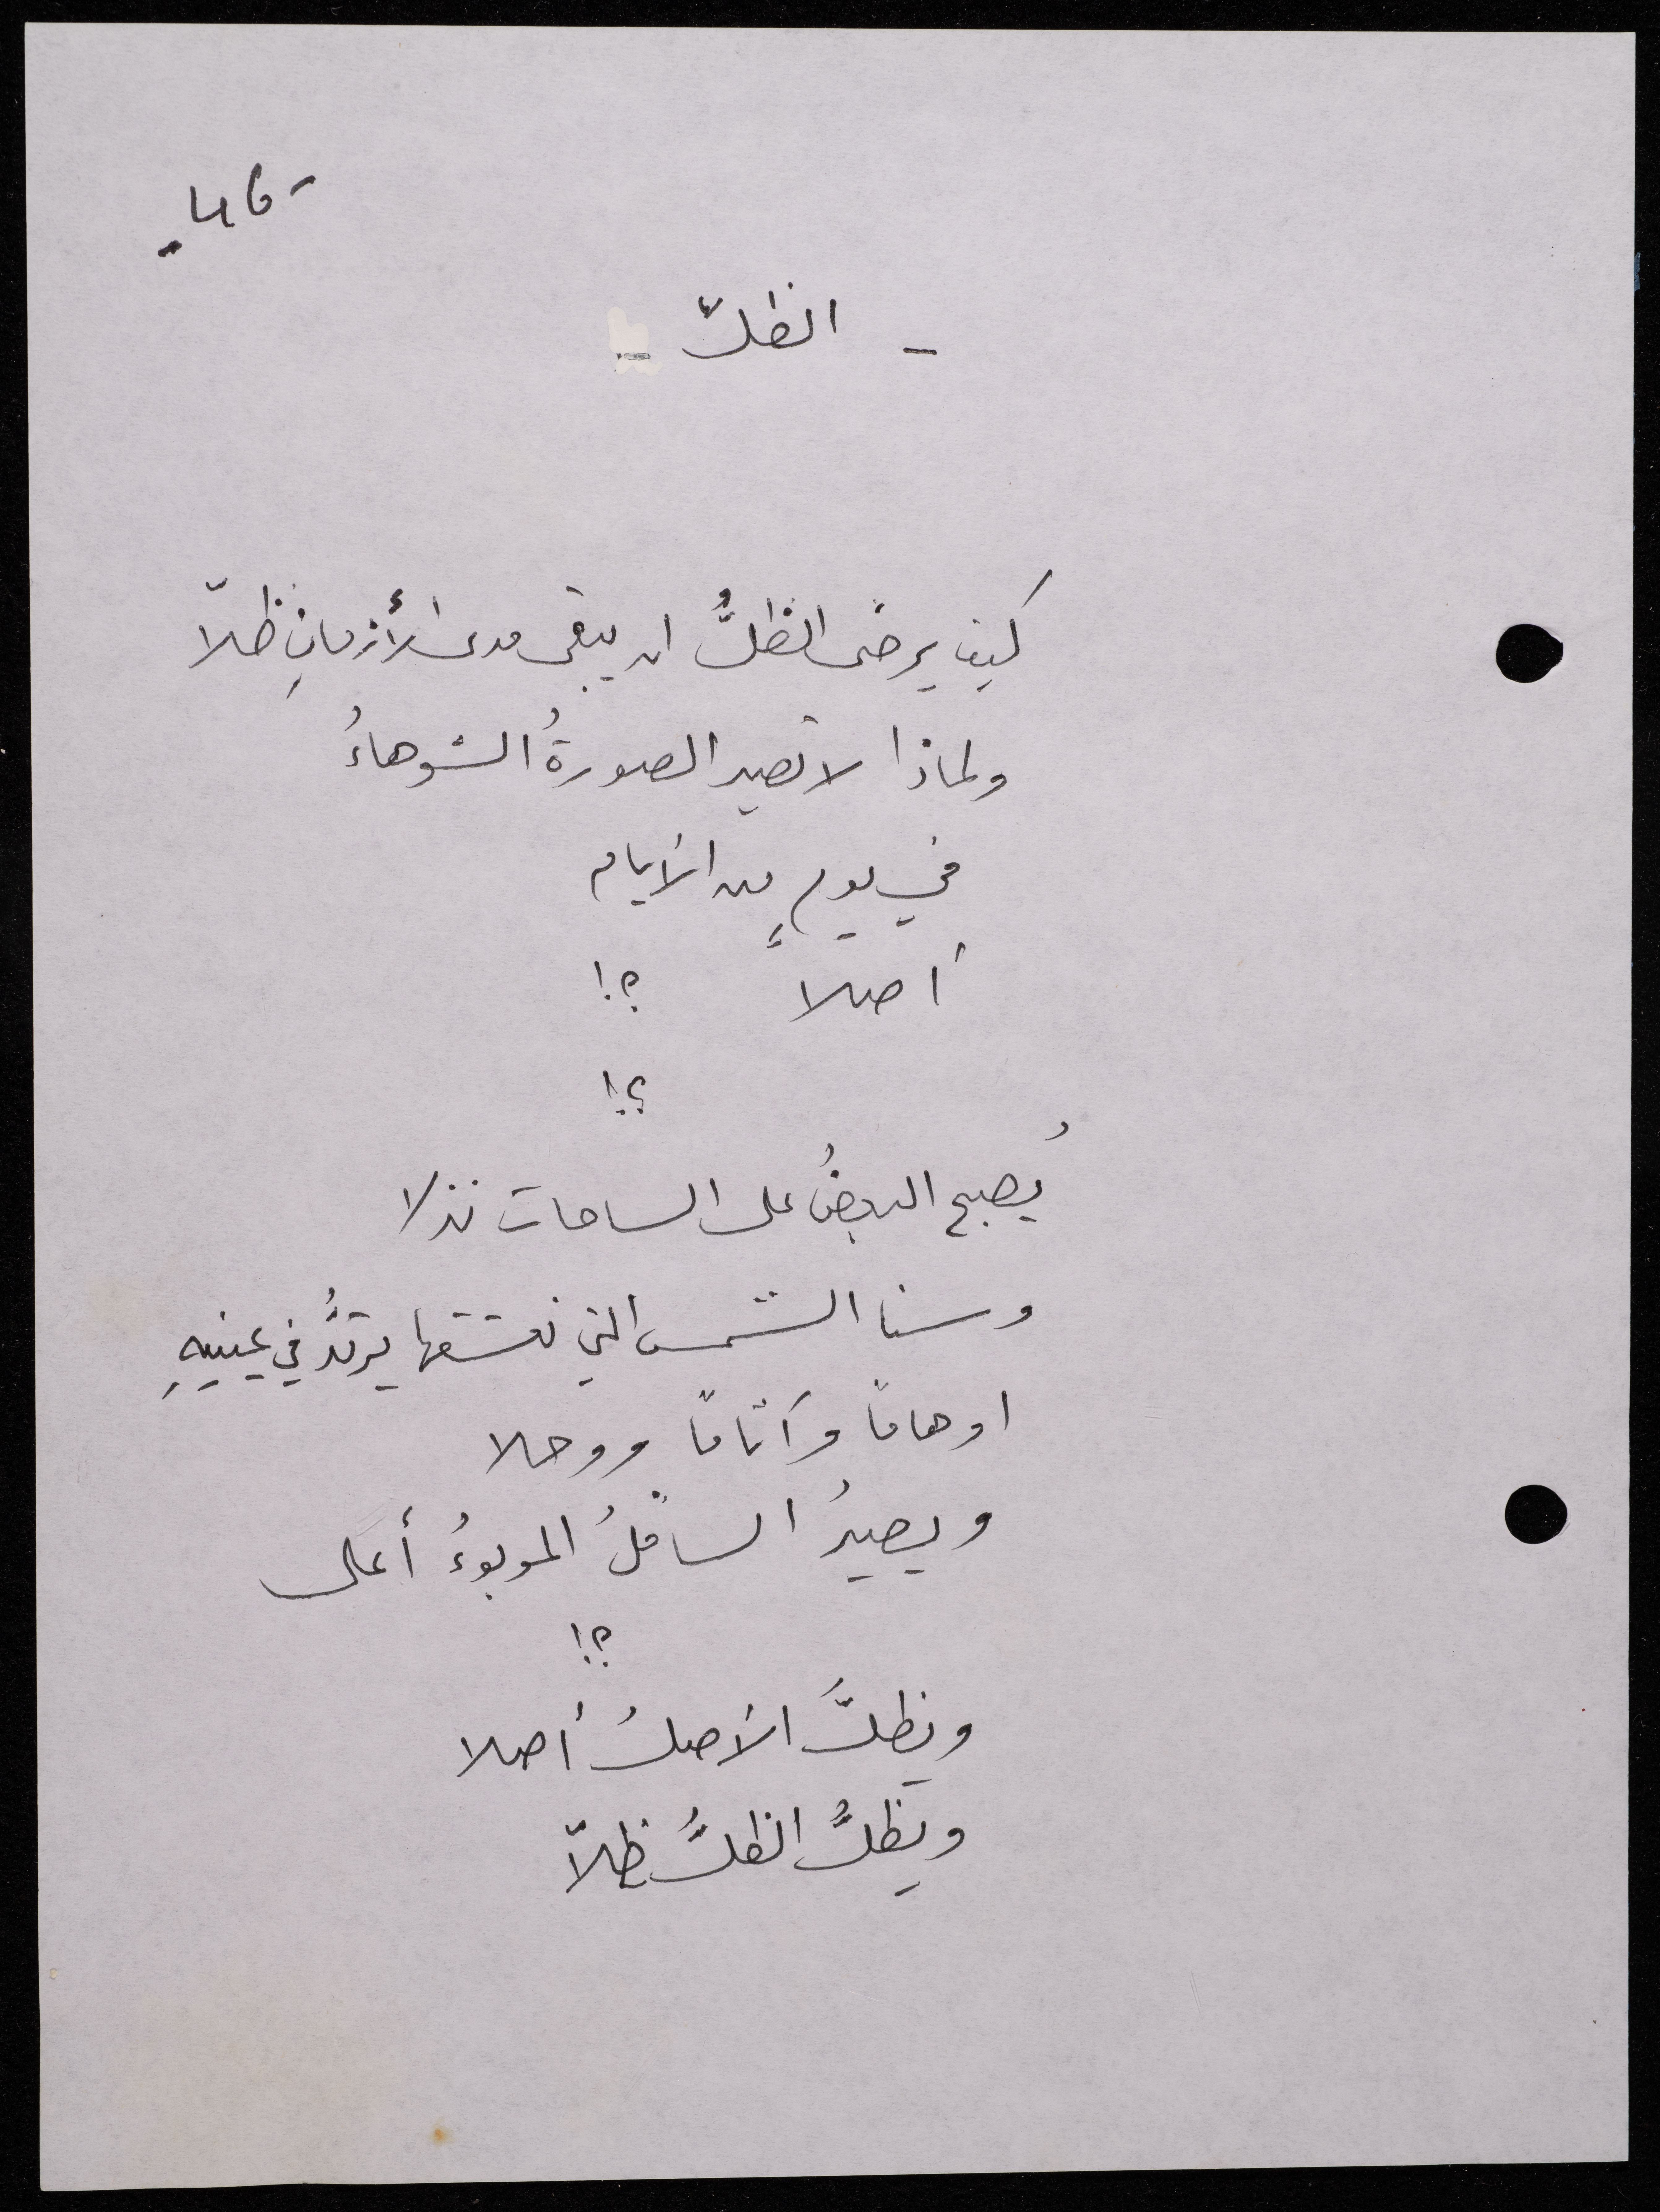 - 46 -
- الظلّ -
كيف يرضى الظلُّ ان يبقى مدى الأزمانِ ظلّا
ولماذا لا تصير الصورةُ الشوهاءُ
في يومٍ من الأيام
أصلاً ؟!
؟!
يُصبح البعضُ على الساحات نذلا
وسنا الشمس التي نعشقها يرتدُّ في عينيهِ
اوهامًا وآثامًا ووحلا
ويصيرُ السافلُ الموبوءُ أعلى
؟!
ويظلَّ الأصلُ أصلا
ويظلُّ الظلُّ ظلّا